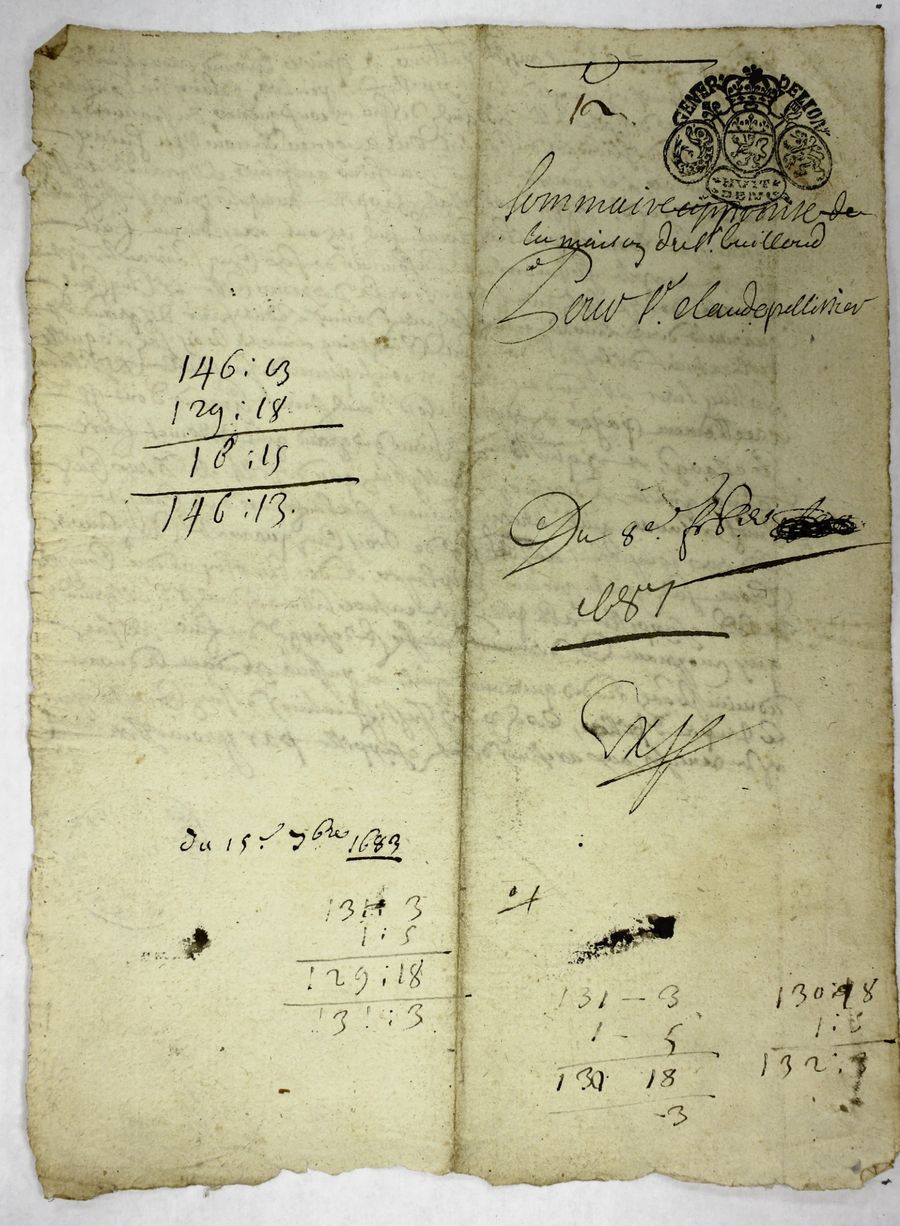 12
GENER. DE LION
HUIT DEN
Sommaire apprinse de
la maison du Sr. Guilloud
Pour Sr. claude pellissier
146 : 13
129 : 18
16 : 15
146 : 13.
Du 8e.
1687
Du 15e. 7bre 1683
131 : 3
1 : 5
129 : 18
131 : 3
131 - 3
1 - 5
130 18
-3
130 : 18
1 : 5
132 : 3